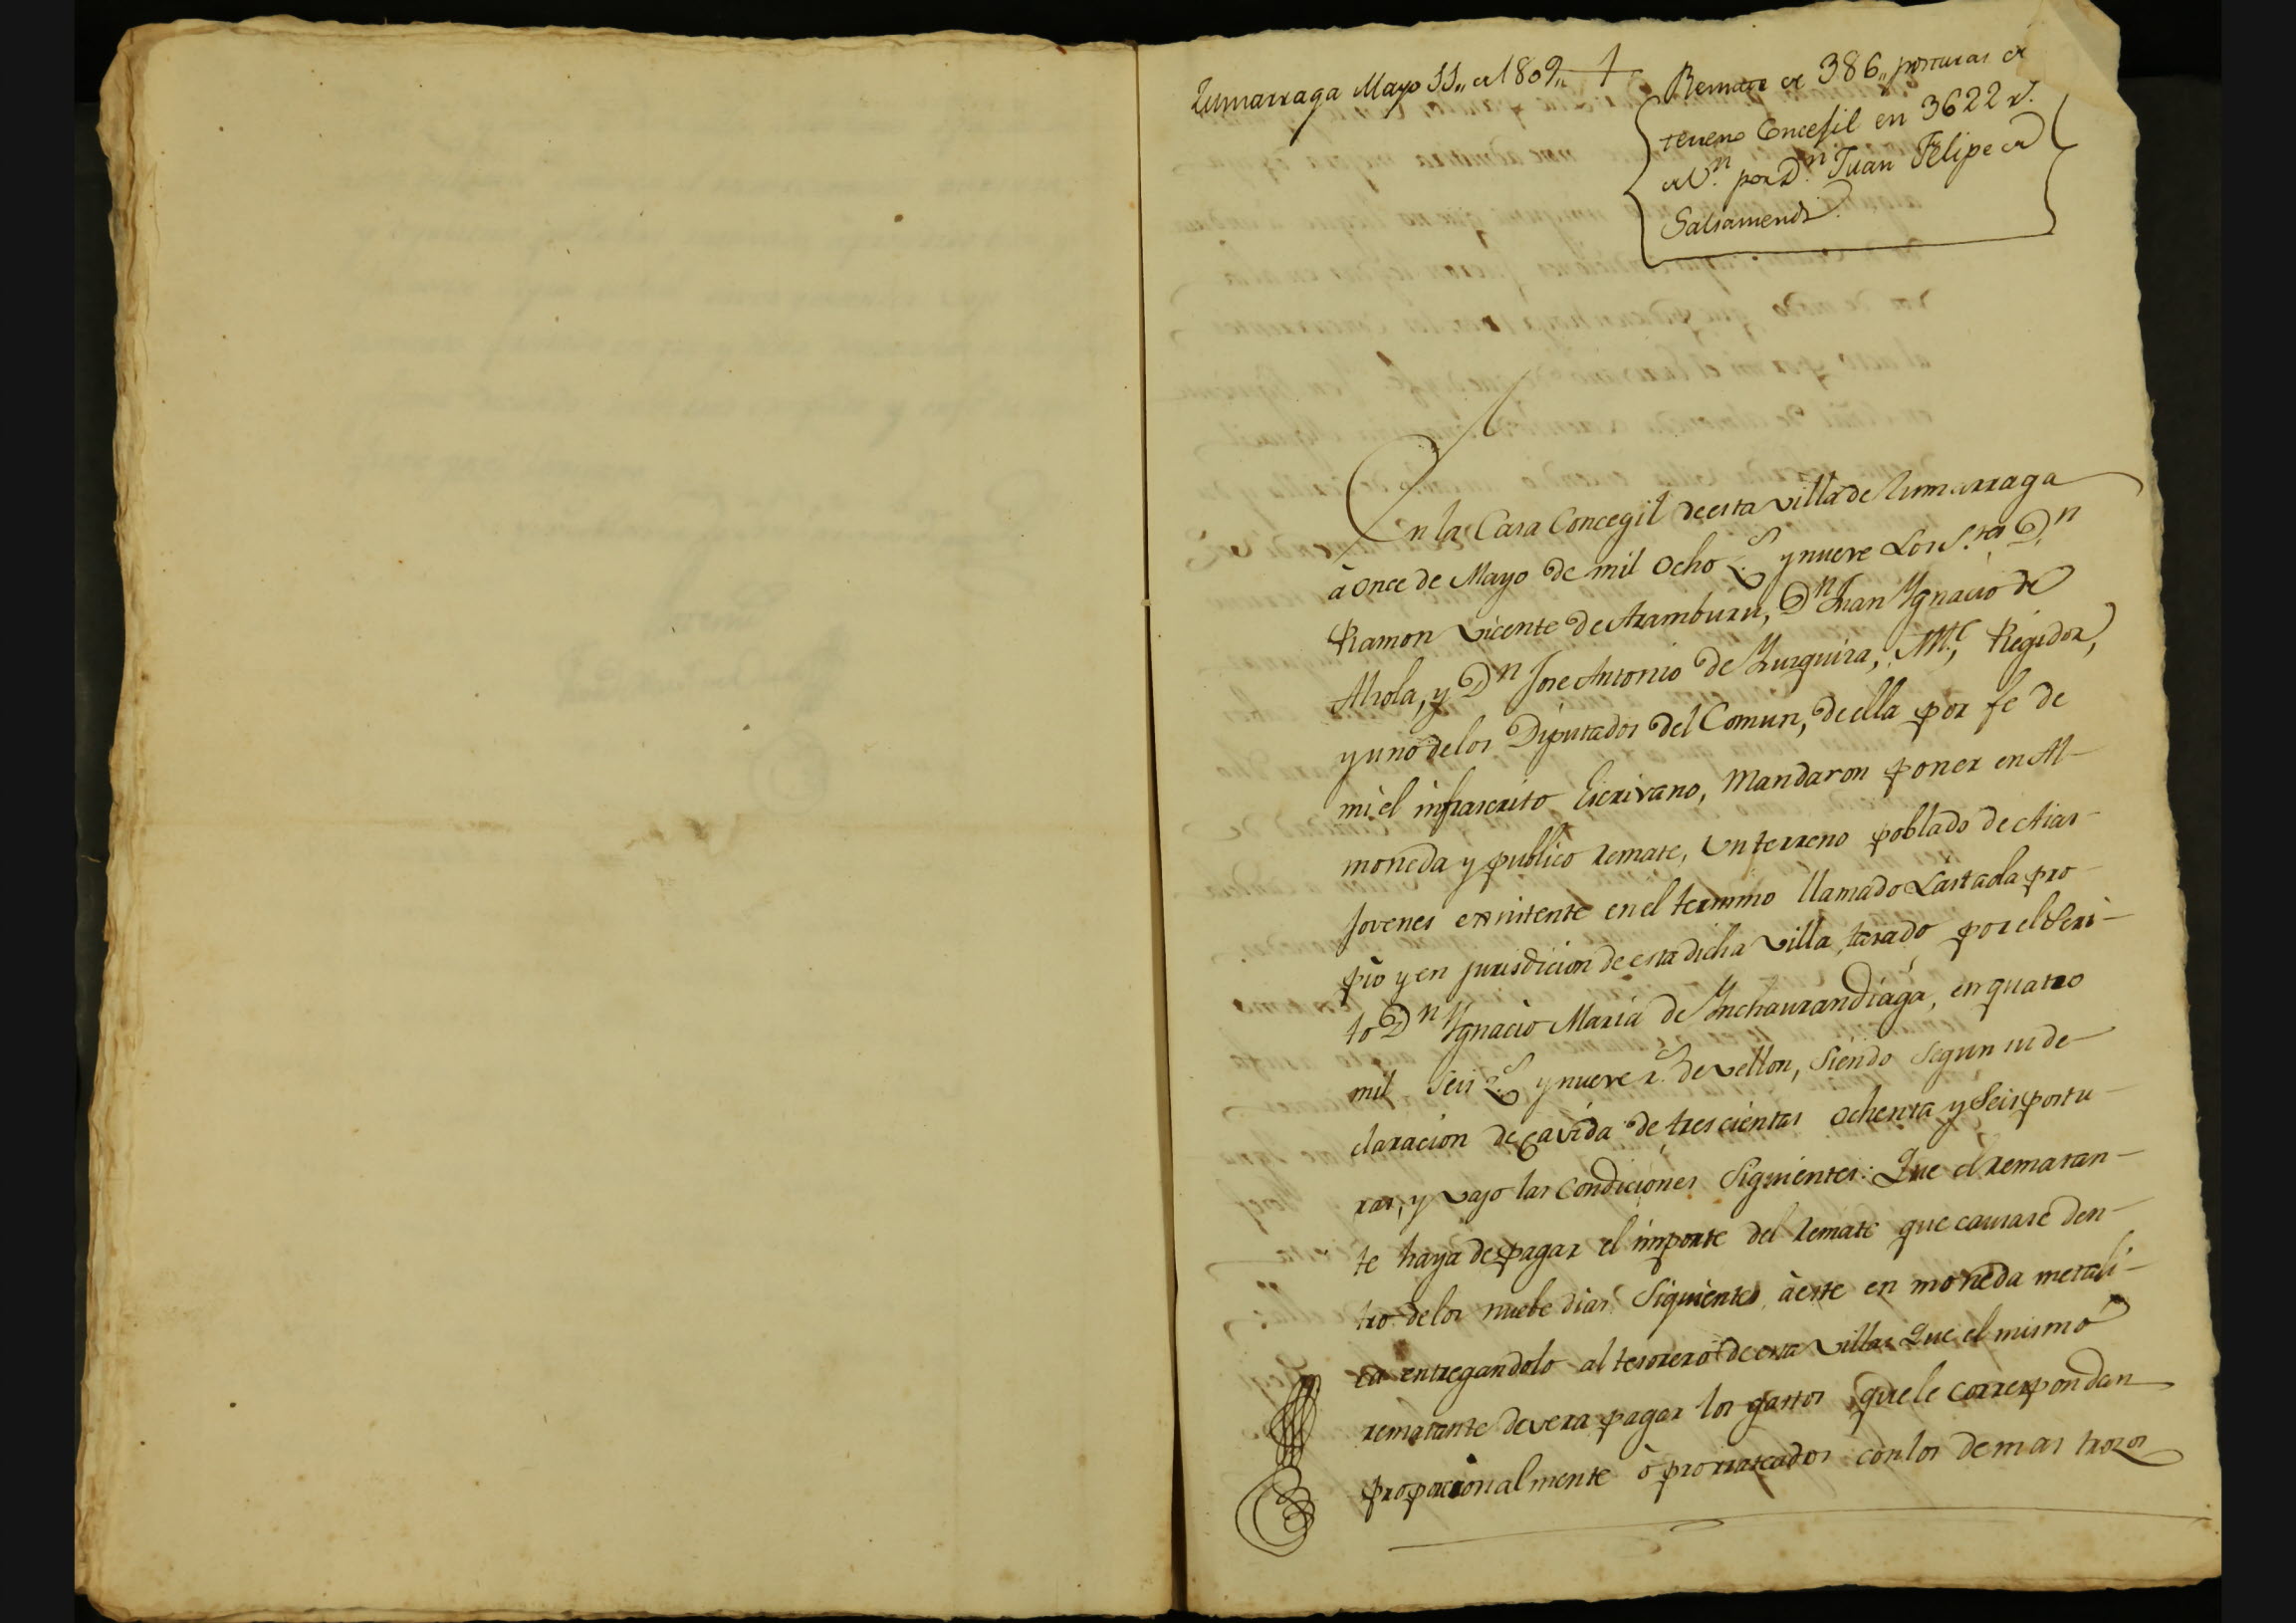 Zumarraga Mayo 11,, de 1809,,
Remate de 386,, posturas de
terreno Concejil en 3622 r.s
de V.n por D.n Juan Felipe de
Salsamendi.
En la Casa Concegil de esta villa de Zumarraga
à Once de Mayo de mil Ocho c.s y nueve Los S.res D.n
Ramon Vicente de Aramburu, D.n Juan Ygnacio de
Alzola, y D.n Jose Antonio de Yzuzquiza, Al.e, Regidor,
y uno de los Diputados del Comun, de ella por fe de
mi el infrascrito Escrivano, Mandaron poner en Al-
moneda y publico remate, Un terreno poblado de Aias-
Jovenes existente en el termino llamado Lastaola pro-
pio y en jurisdicion de esta dicha villa, tasado por el Peri-
to D.n Ygnacio Maria de Ynchaurandiaga, en quatro
mil Seis c.s y nueve r.s de vellon, Siendo Segun su de-
claracion de cavida de trescientas Ochenta y Seis postu-
ras, y vajo las Condiciones Siguientes: Que el rematan-
te haya de pagar el importe del remate que causare den-
tro de los nuebe dias Siguientes à este en moneda metali-
ca entregandolo al tesorero de esta villa: Que el mismo
rematante devera pagar los gastos que le correspondan
proporcionalmente ò prorrateados con los demas trozos